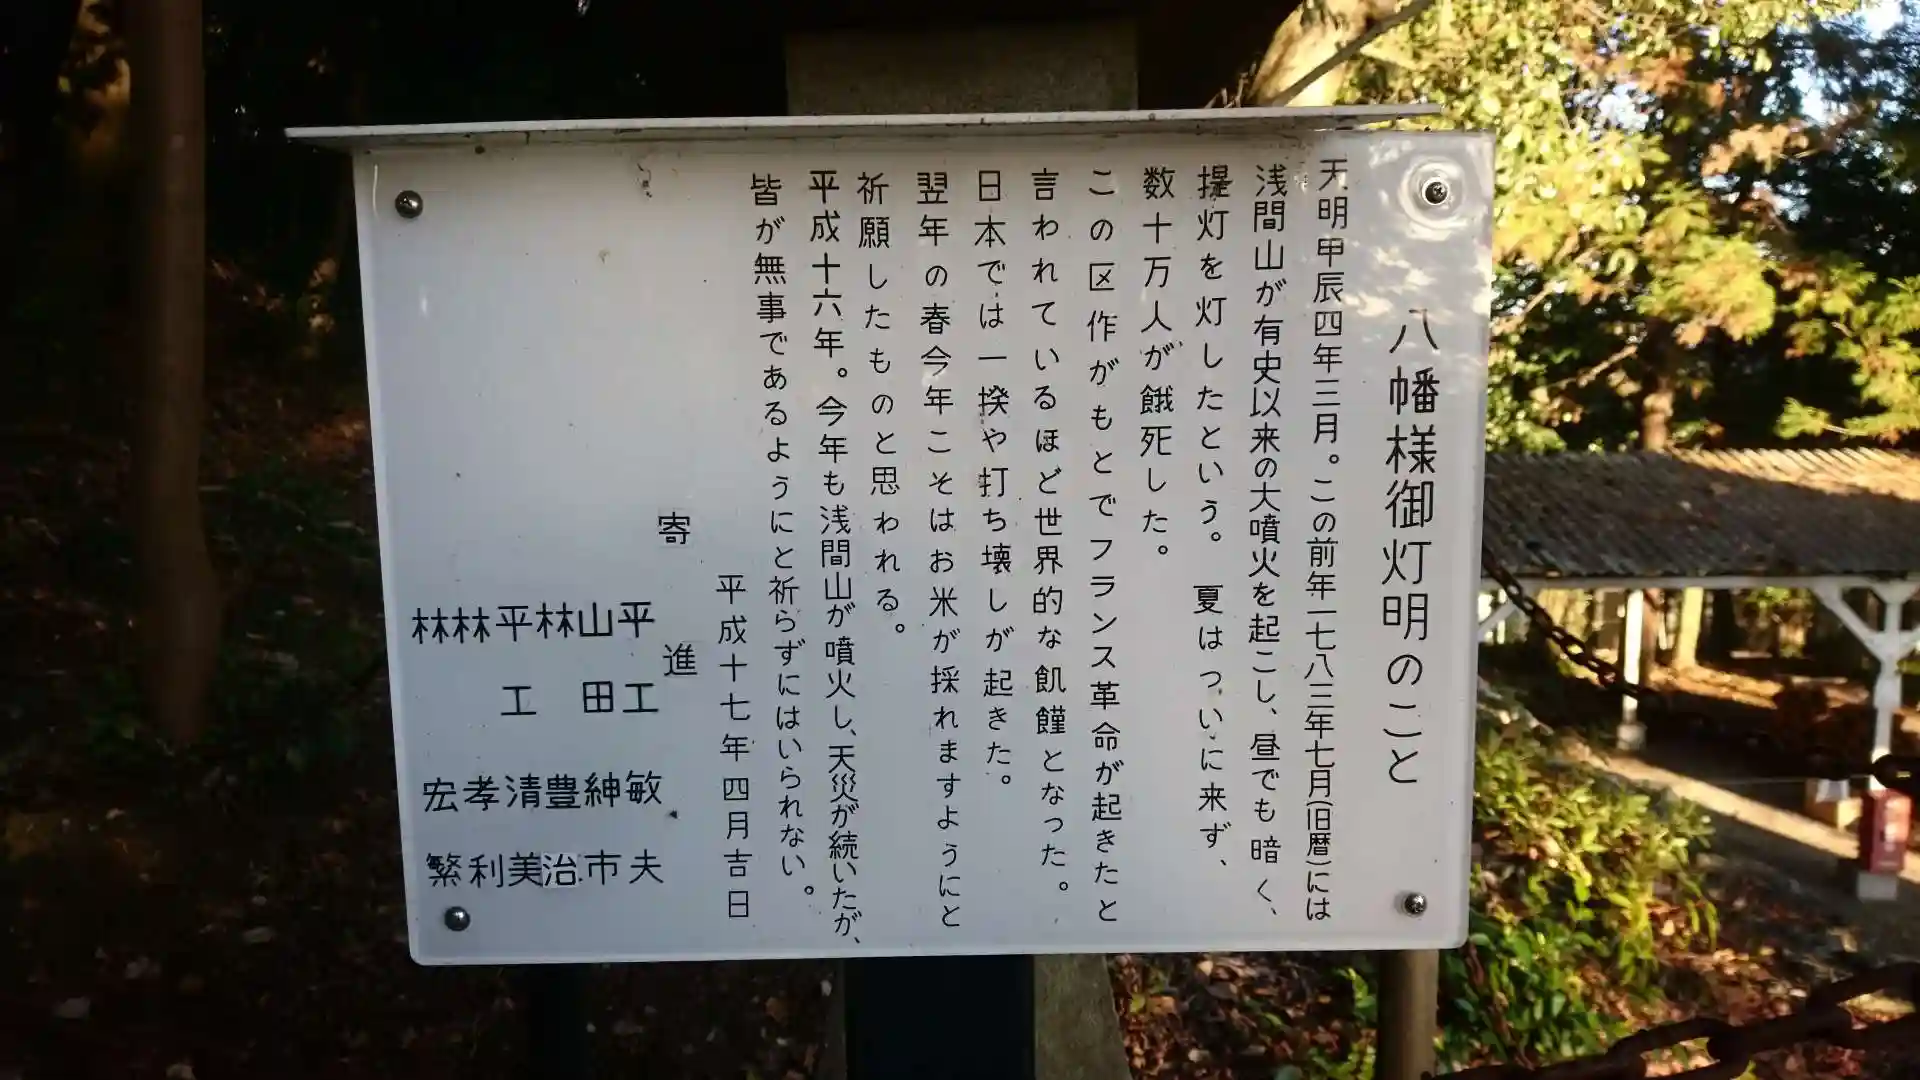 八幡様御灯明のこと
天明甲辰四年三月。この前年一七八三年七月(旧暦)には
浅間山が有史以来の大噴火を起こし、昼でも暗く、
提灯を灯したという。夏はついに来ず、
数十万人が餓死した。
この区作がもとでフランス革命が起きたと
言われているほど世界的な飢饉となった。
日本では一揆や打ち壊しが起きた。
翌年の春今年こそはお米が採れますようにと
祈願したものと思われる。
平成十六年。今年も浅間山が噴火し、天災が続いたが、
皆が無事であるようにと祈らずにはいられない。
平成十七年四月吉日
寄進
平工敏夫
山田紳市
林豊治
平工清美
林孝利
林宏繁